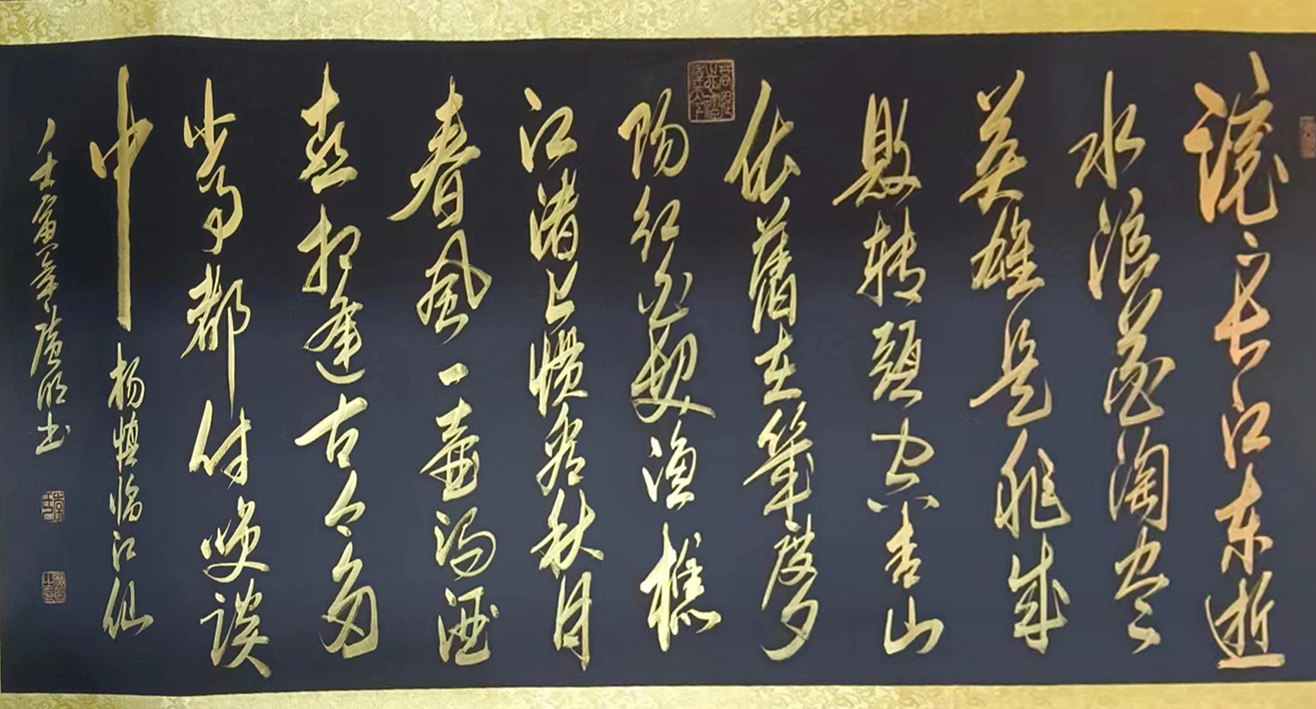 滚々长江东逝
水浪花淘尽
英雄是非成
败转頭空青山
依舊在幾度夕
阳红白发渔樵
江渚上惯看秋月
春风一壶浊酒
喜相逢古今多
少事都付笑谈
中 杨慎临江仙
壬寅年廣明书